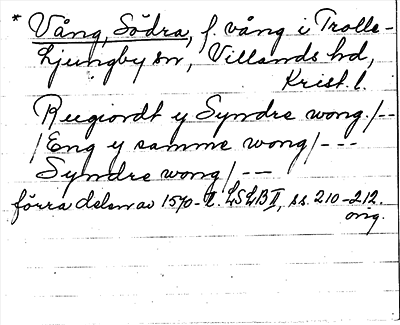 * Vång, Södra, f. vång i Trolle-
Ljungby sn, Villands hd,
Krist. l.
Rugiordt y Syndre wong /--
/ Eng y samme wong /---
Syndre wong /--
förra delen av 1570-t. LSLB II, ss. 210-212.
orig.